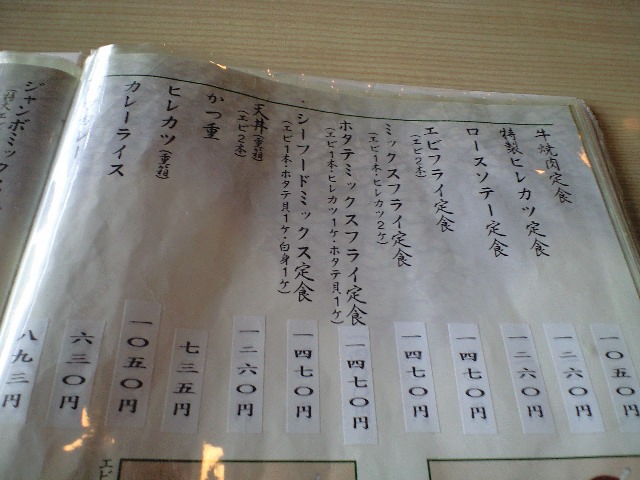 牛焼肉定食 一〇五〇円
特製ヒレカツ定食 一二六〇円
ロースソテー定食 一二六〇円
エビフライ定食 一四七〇円
ミックスフライ定食 一四七〇円
(エビ1本・ヒレカツ2ケ)
ホタテミックスフライ定食 一四七〇円
(エビ1本・ヒレカツ1ケ・ホタテ貝1ケ)
シーフードミックス定食 一四七〇円
(エビ1本・ホタテ貝1ケ・白身1ケ)
天丼(重箱) 一二六〇円
(エビ2本)
かつ重 七三五円
ヒレカツ(重箱) 一〇五〇円
カレーライス 六三〇円
八九三円
ジャンボミックス
エビ